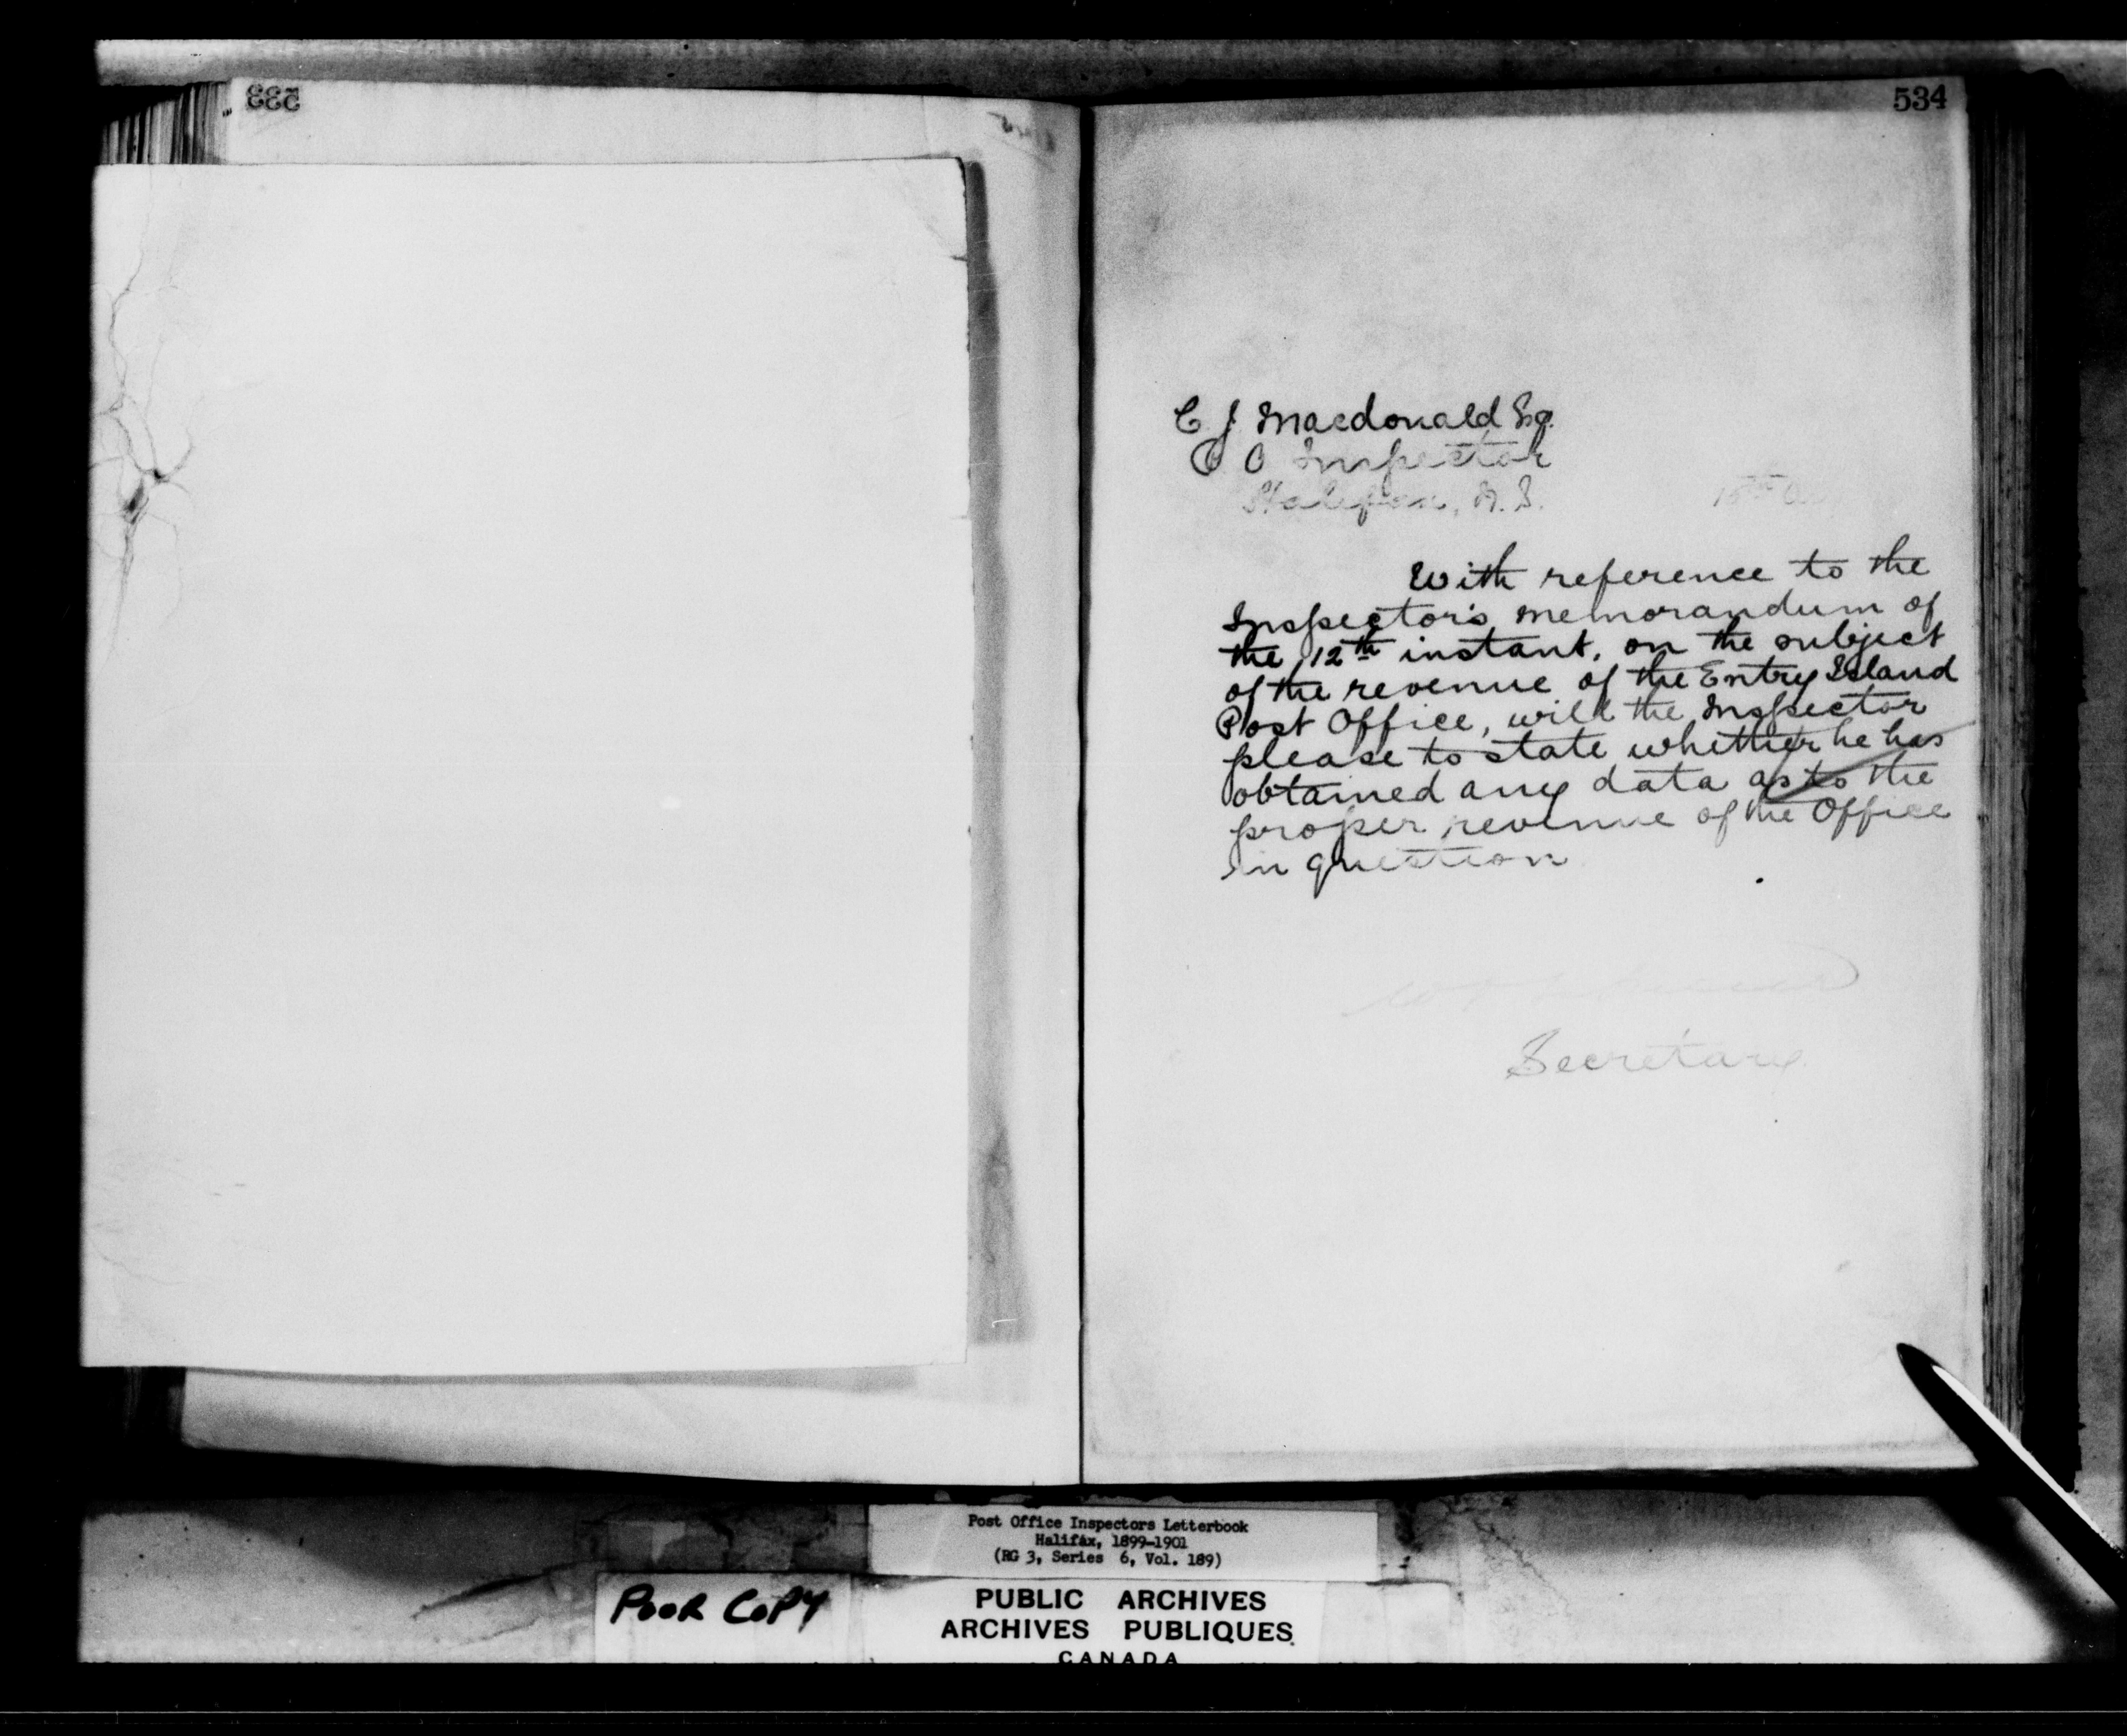 533
534
C. J. Macdonald Esq.
P. O Inspector
Halifax, N. S.
15th
With reference to the
Inspector's memorandum of
the 12th instant, on the subject
of the revenue of the Entry Island
Post Office, will the Inspector
please to state whether he has
obtained any data as to the
proper revenue of the Office
in question
Secretary
Post Office Inspectors Letterbook
Halifax, 1899-1901
(RG 3, Series 6, Vol. 189)
POOR COPY
PUBLIC ARCHIVES
ARCHIVES PUBLIQUES
CANADA